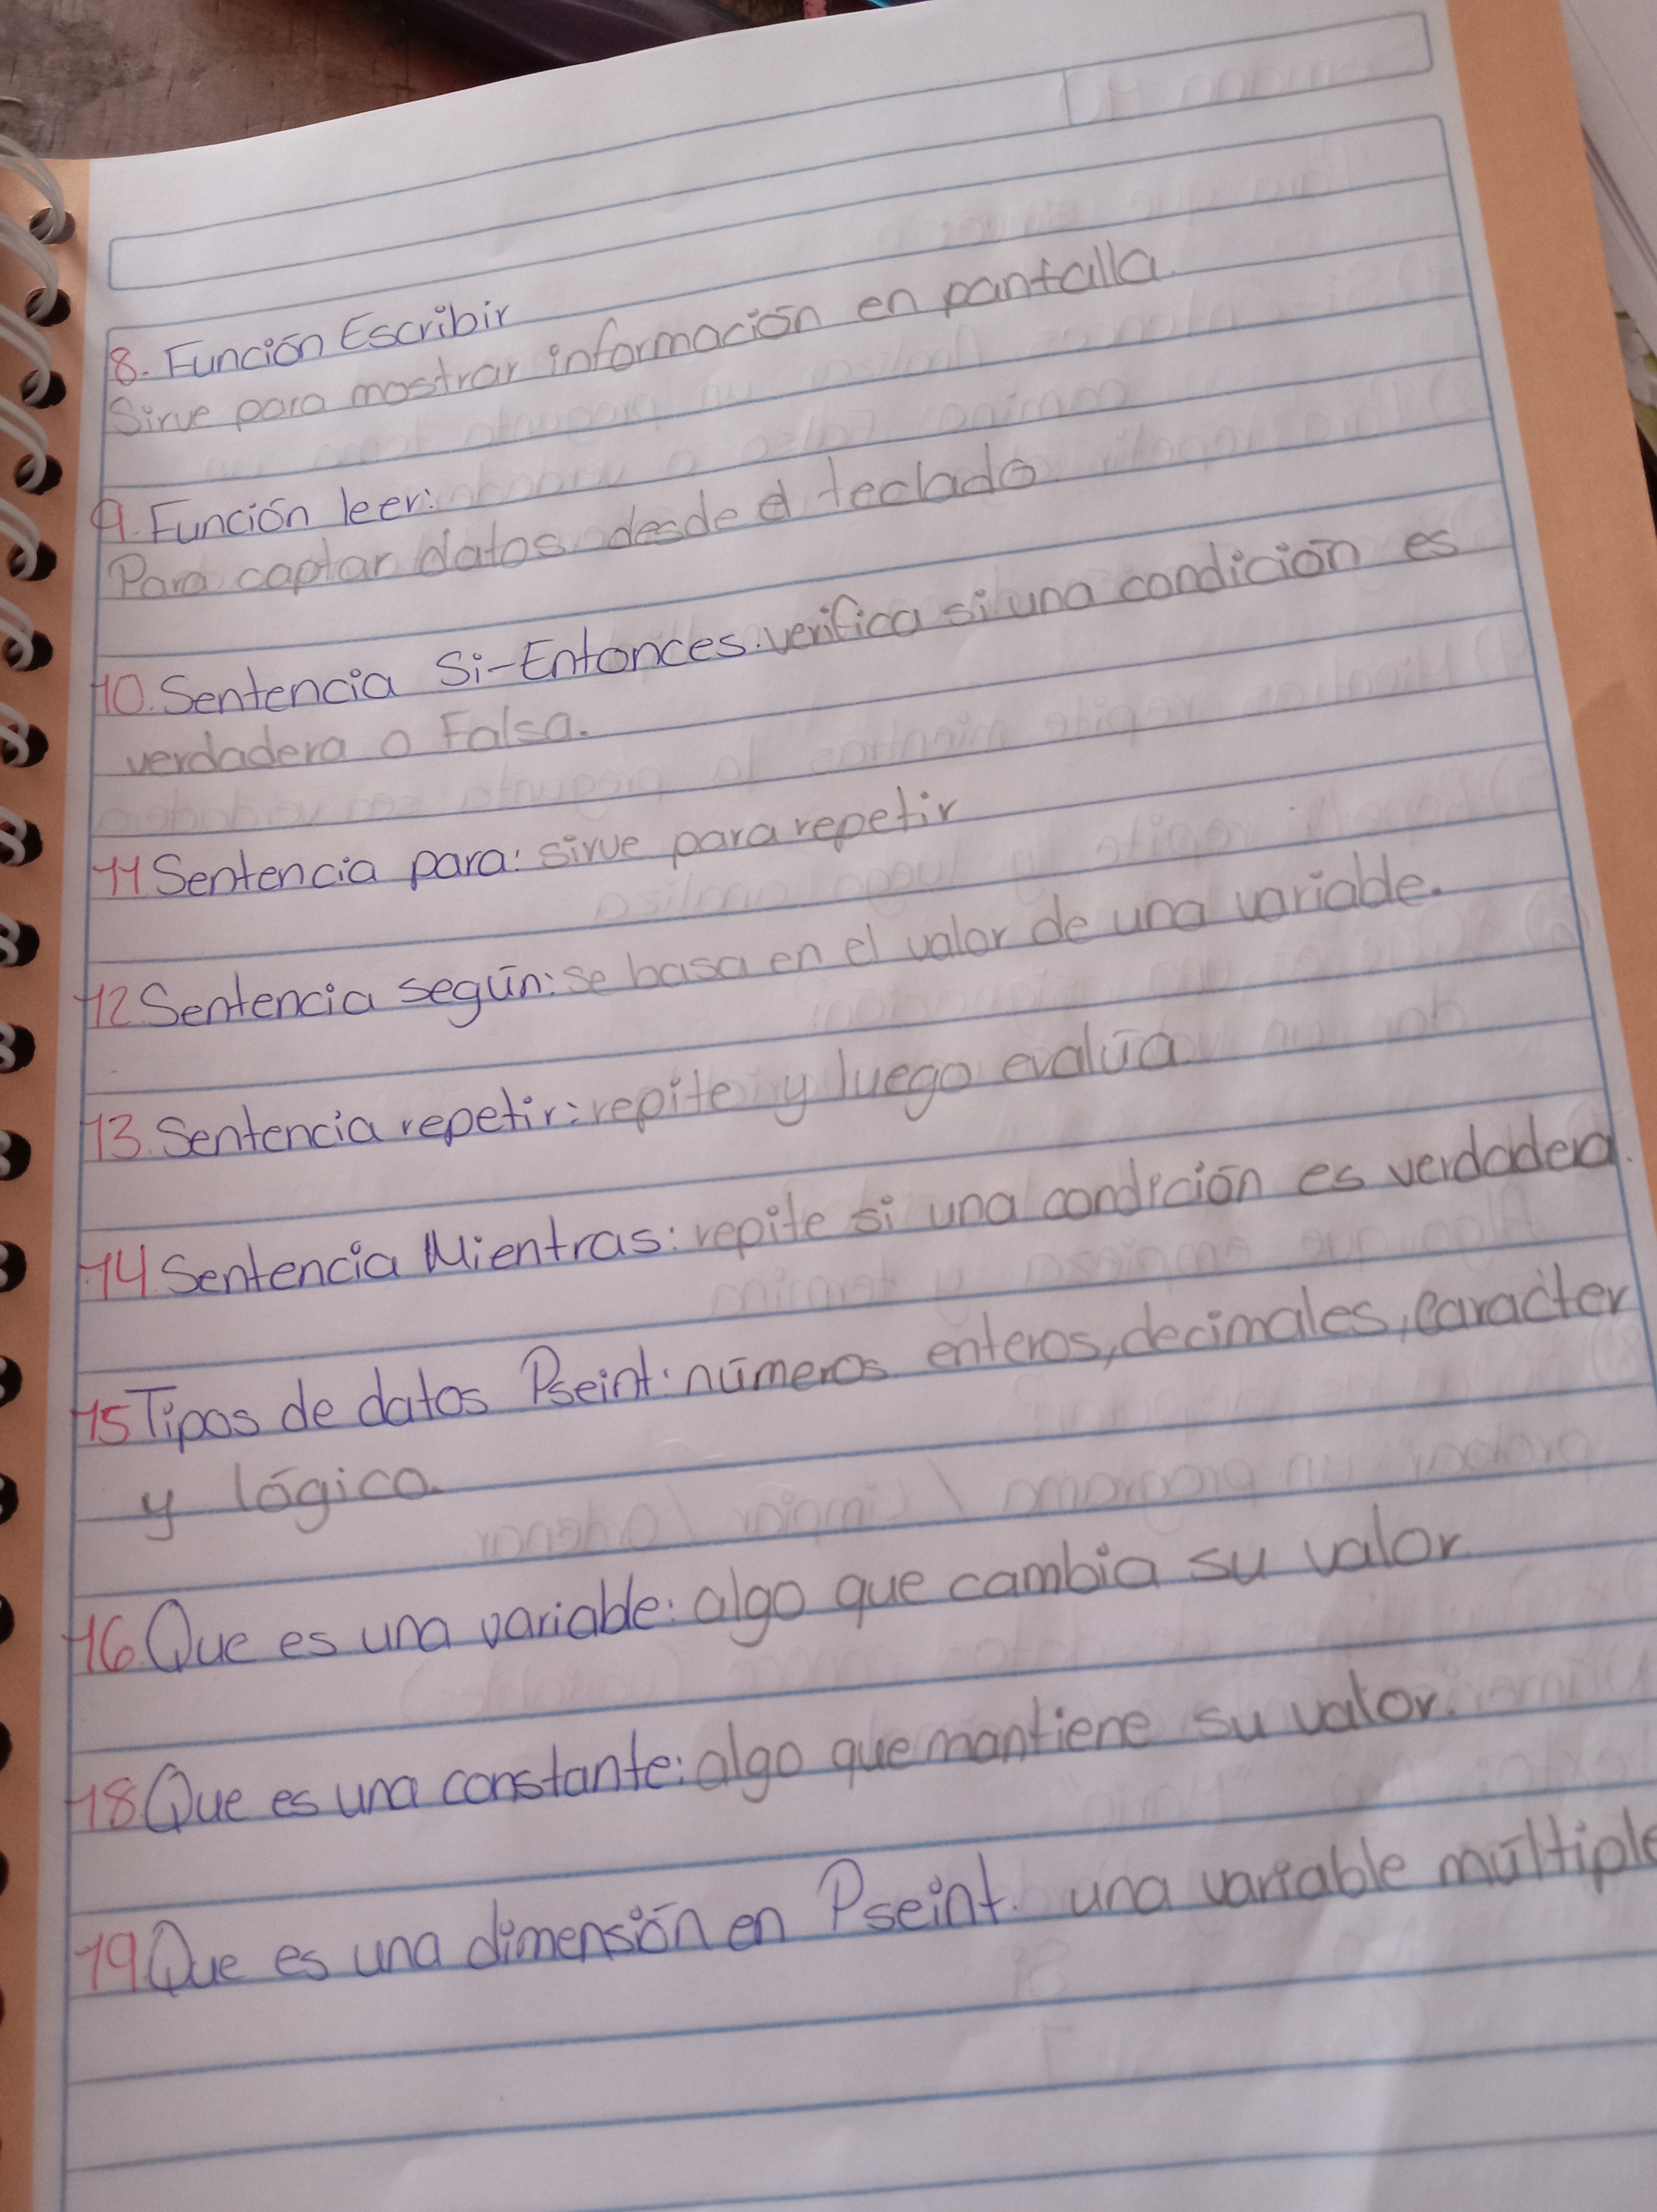 8. Función Escribir
Sirve para mostrar información en pantalla
9. Función leer:
Para captar datos desde el teclado
10. Sentencia Si-Entonces: verifica si una condición es
verdadera o Falsa.
11 Sentencia para: sirve para repetir
12 Sentencia según: se basa en el valor de una variable.
13. Sentencia repetir: repite y luego evalúa
14 Sentencia Mientras: repite si una condición es verdadera.
15 Tipos de datos Pseint: números enteros, decimales, caracter
y lógico.
16. Que es una variable: algo que cambia su valor
18. Que es una constante: algo que mantiene su valor.
19. Que es una dimensión en Pseint. una variable múltiple